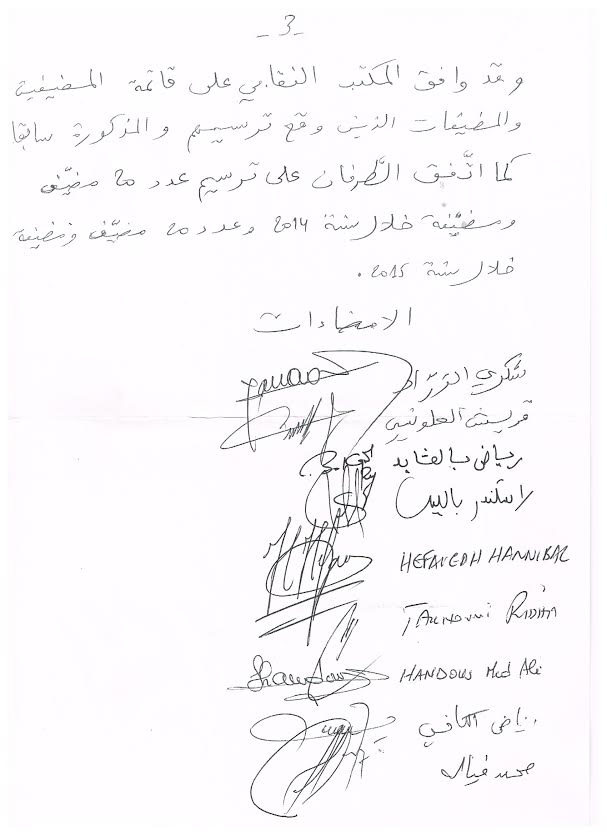 - 3 -
وقد وافق المكتب النقابي على قائمة المضيفين
والمضيفات الذين وقع ترسيمهم والمذكورة سابقا
كما اتّفق الطّرفان على ترسيم عدد 20 مضيّف
ومضيّفة خلال سنة 2014 وعدد 20 مضيّف ومضيفة
خلال سنة 2015.
الامضاءات
شكري
قريش العلوني
رياض بالقايد
اسكندر
HEFAIEDH HANNIBAL
RIDHA
HANDOUS Med Ali
رياض الكافي
محمد